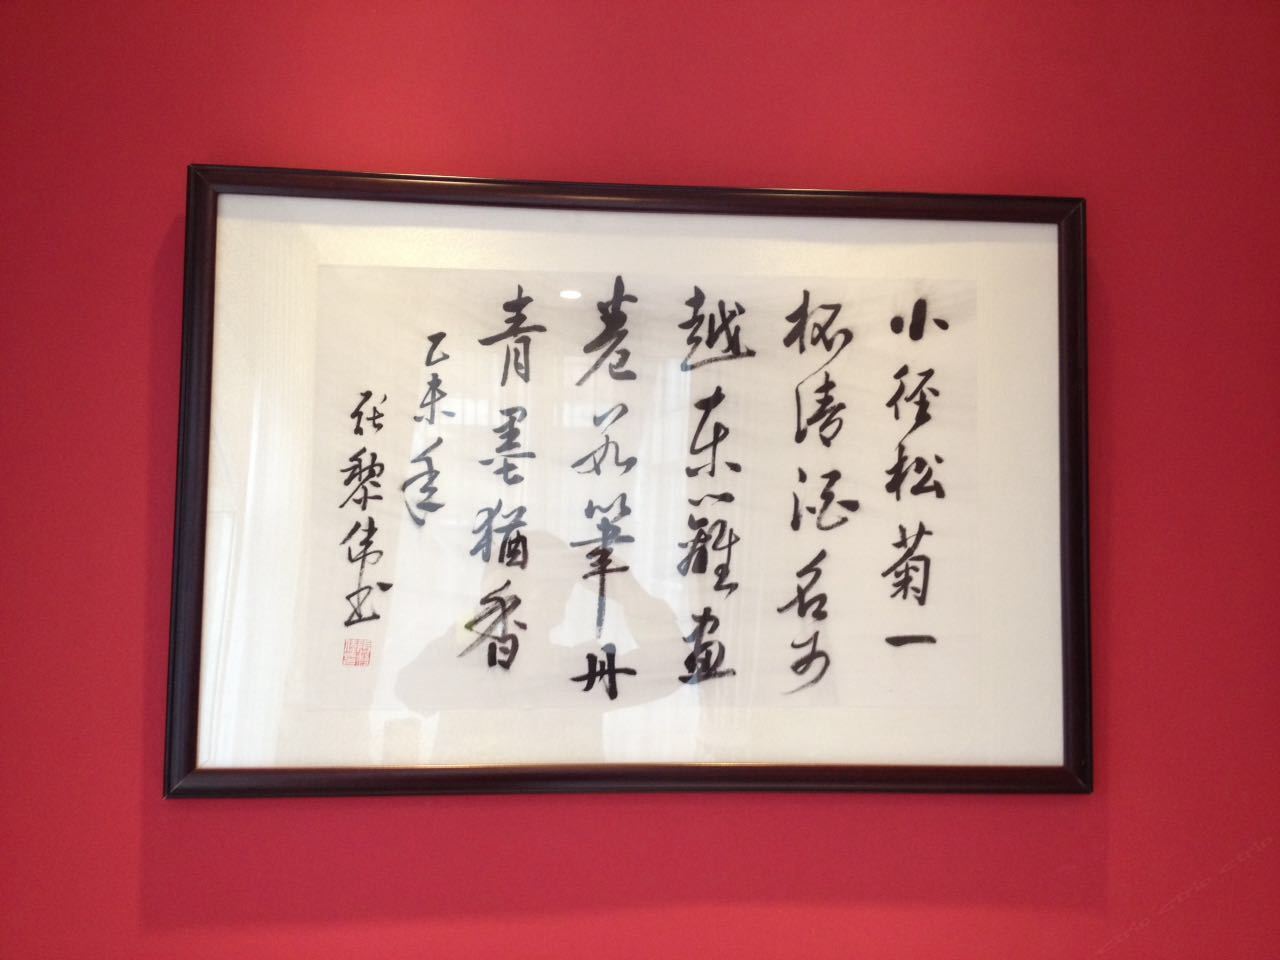 小径松菊一
杯清酒名少
越东篱画
卷君笔丹
青墨犹香
乙未年
张黎伟书